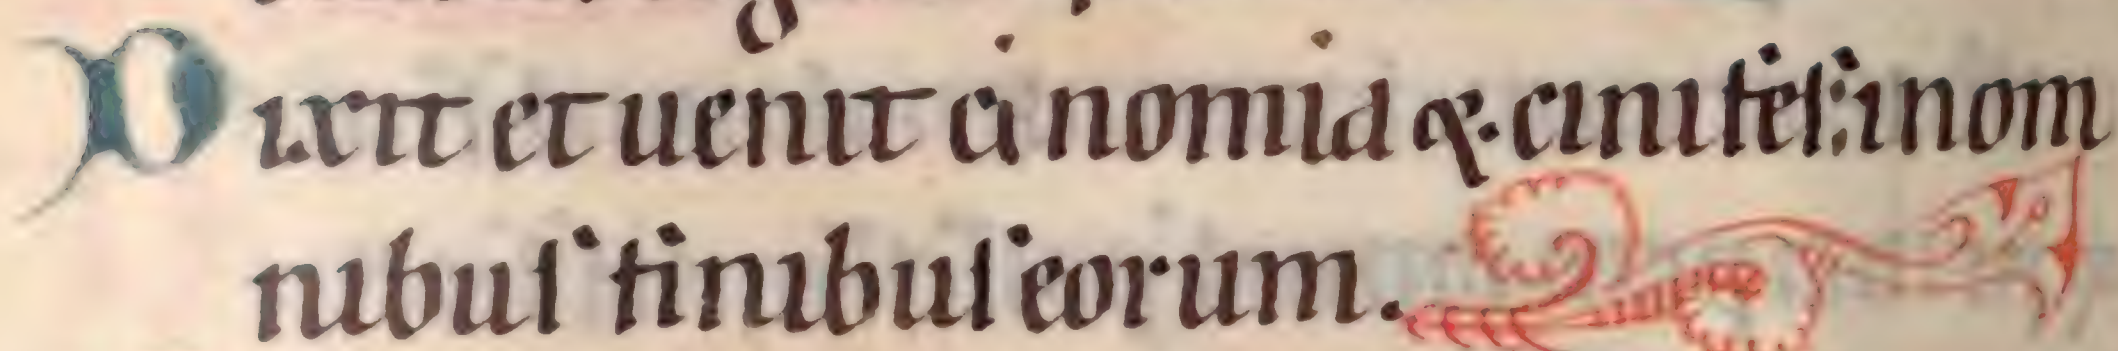 Dixit et uenit ci nomia &. cinifes: in om
nibus finibus eorum.